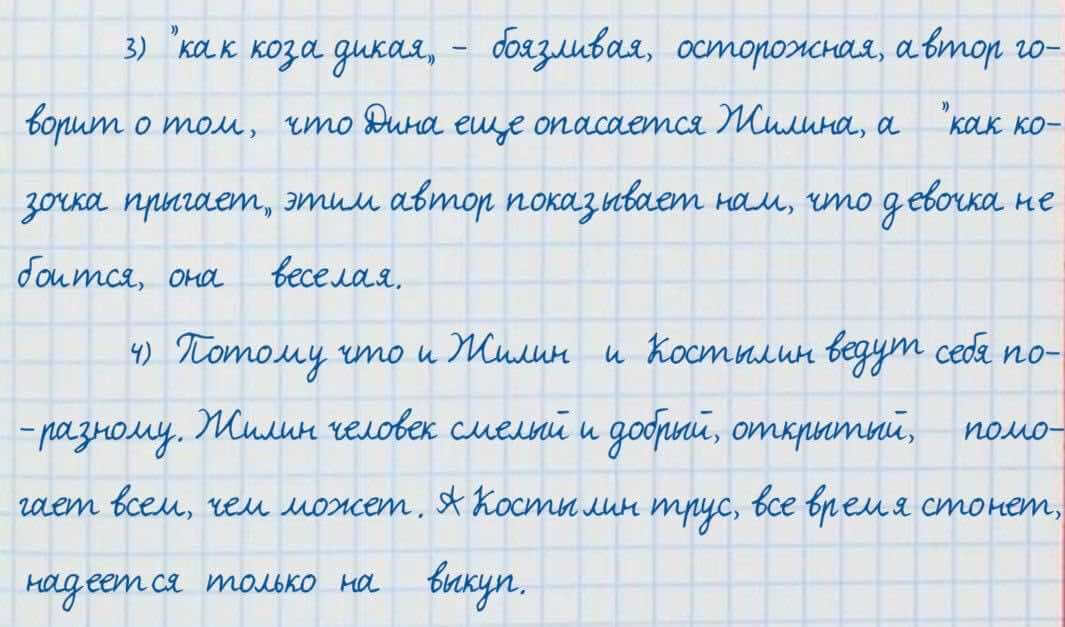 3) "как коза дикая„ - боязливая, осторожная, автор го-
ворит о том, что Дина еще опасается Жилина, а "как ко-
зочка прыгает„ этим автор показывает нам, что девочка не
боится, она веселая.
4) Потому что и Жилин и Костылин ведут себя по-
-разному. Жилин человек смелый и добрый, открытый, помо-
гает всем, чем может. А Костылин трус, все время стонет,
надеется только на выкуп.